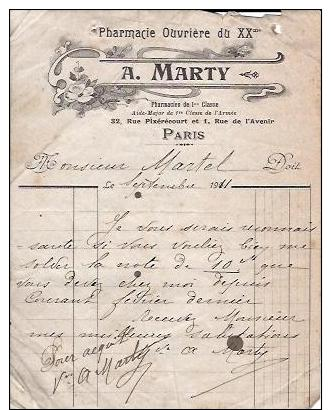 Pharmacie Ouvrière du XXme
A. MARTY
Pharmacien de 1ere Classe
Aide-Major de 1re Classe de l'Armée
32, Rue Pixérécourt et 1, Rue de l'Avenir
PARIS
Monsieur Martel Doit
Le Septembre 1911
Je vous serais reconnais
sante si vous vouliez bien me
solder la note de 10 que
vous devez chez moi depuis
Courant février dernier
Recevez Monsieur
mes meilleures salutations
Vve A Marty
Pour acquit
Vve A Marty